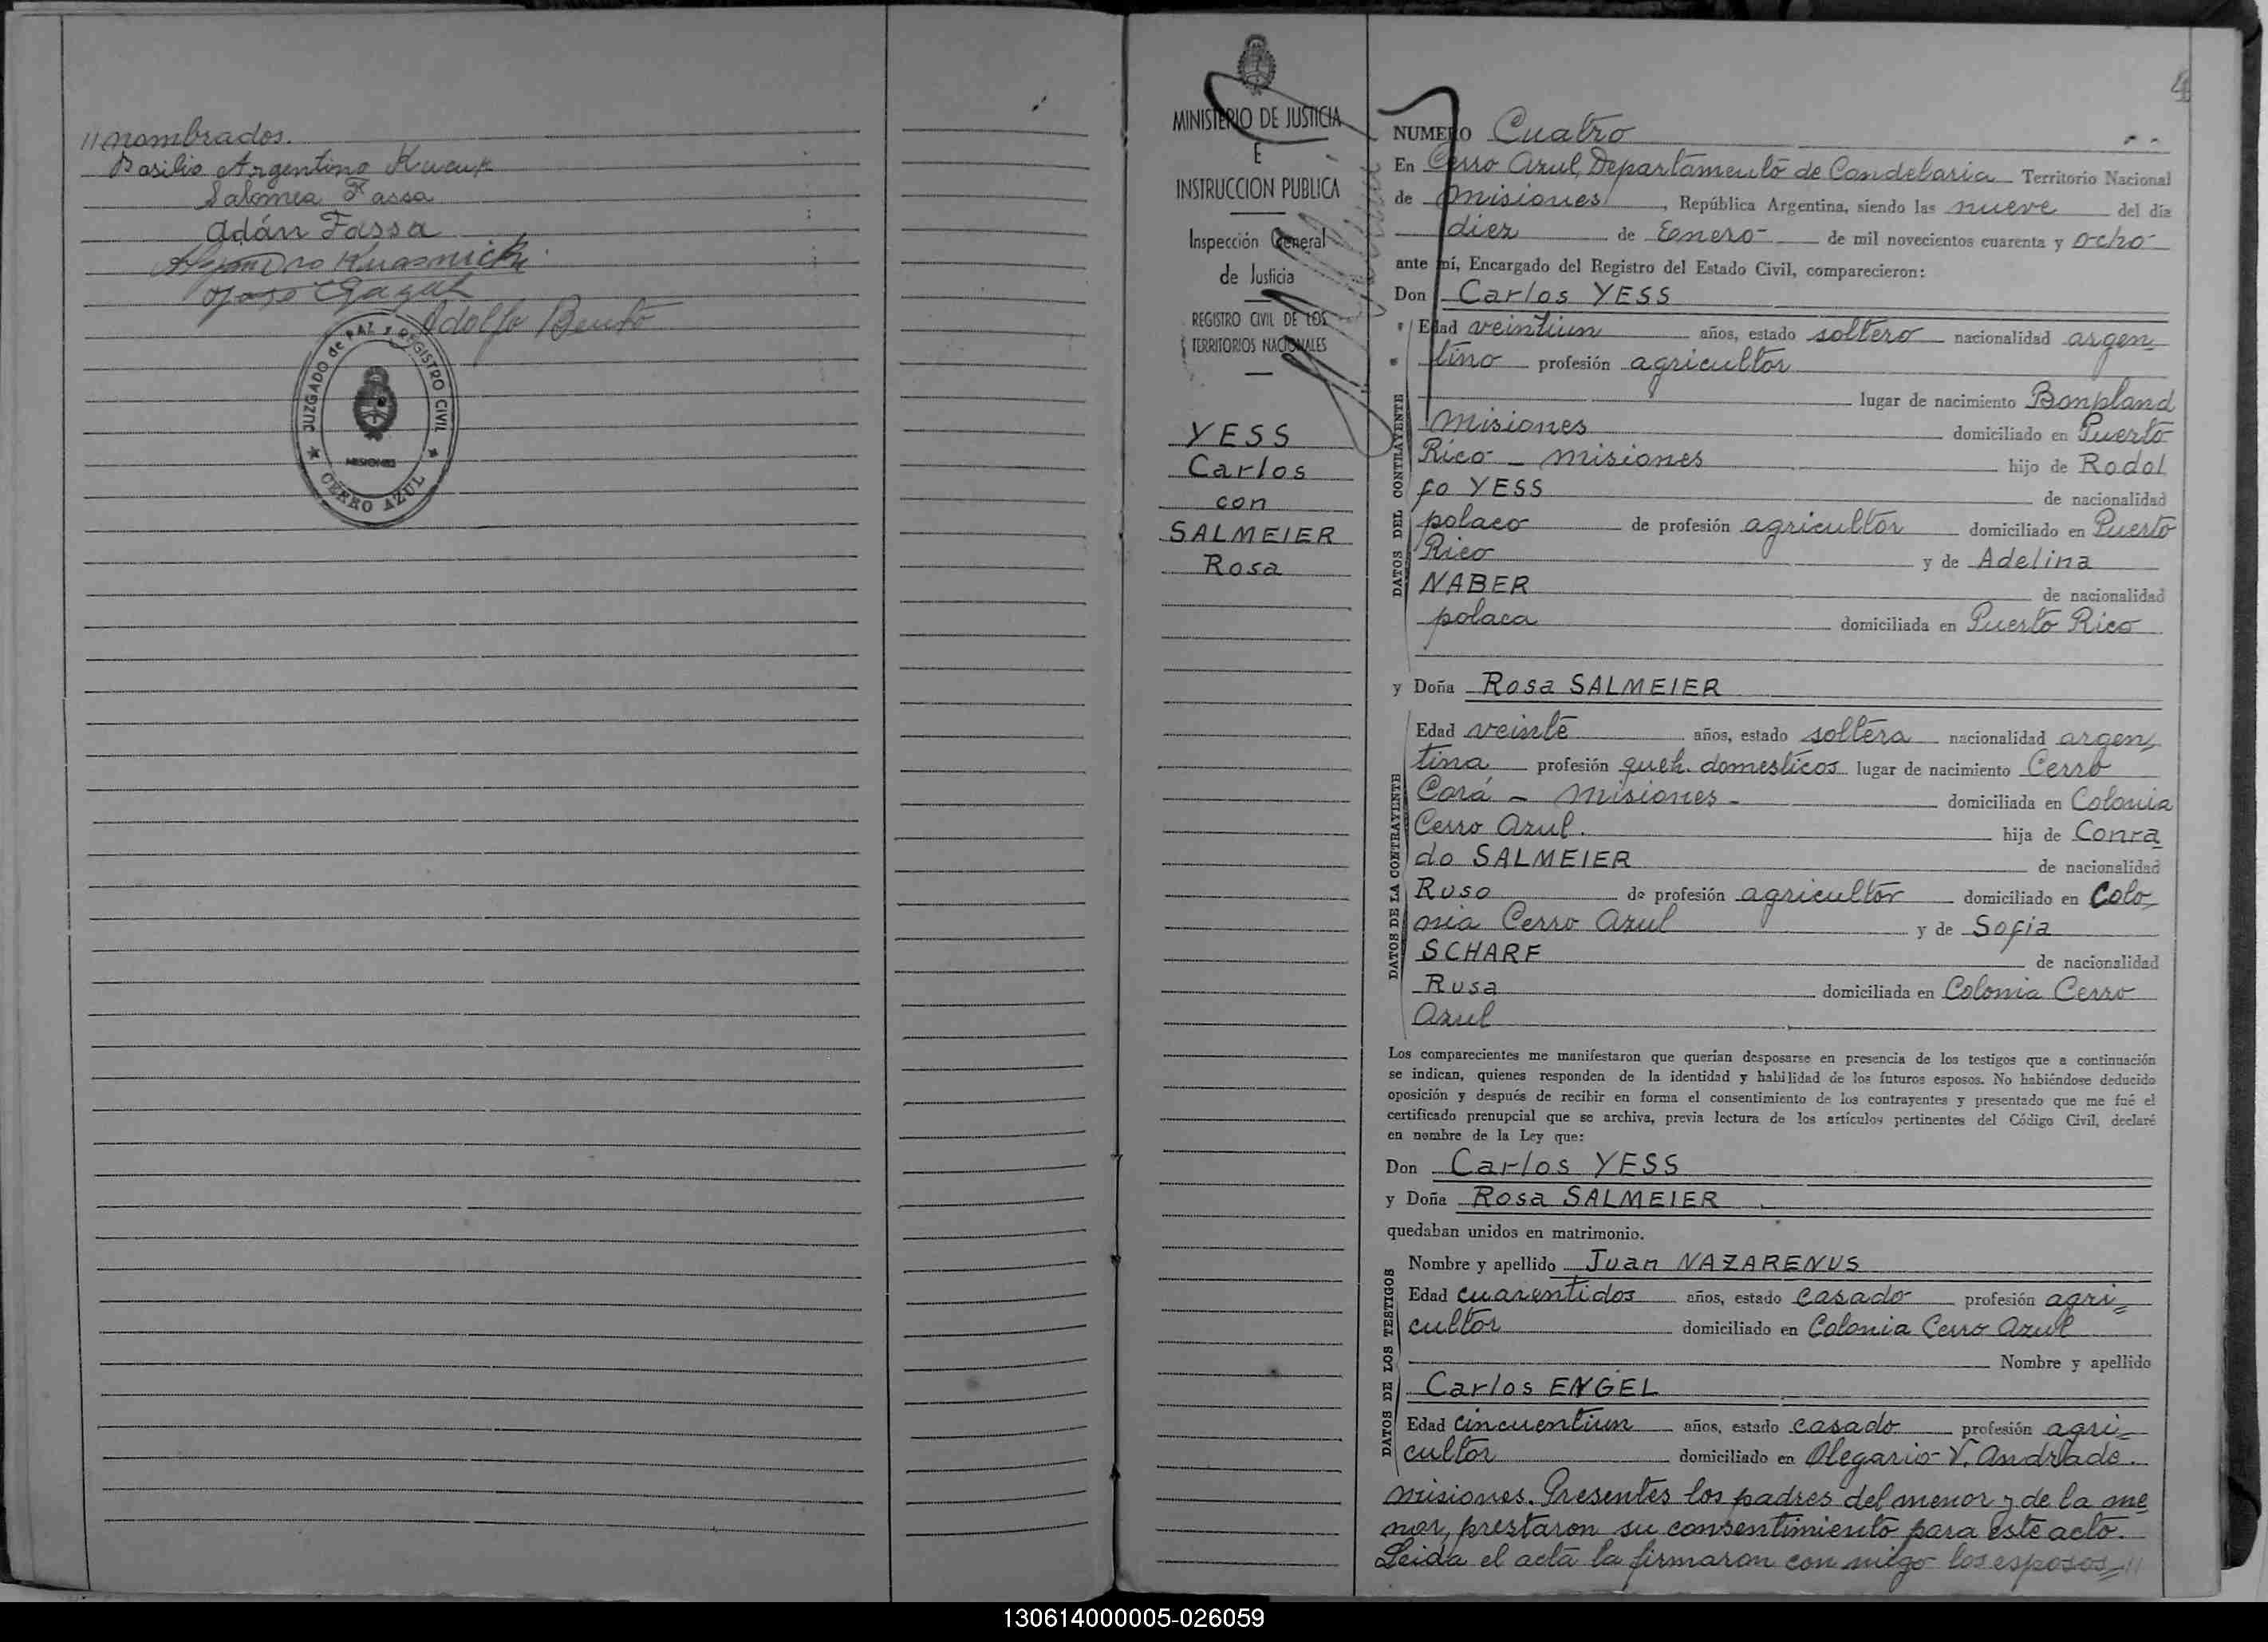 // nombrados.
Basilio Argentino
Salomea Fassa
Adán Fassa
Adolfo
JUZGADO de PAZ y REGISTRO CIVIL
MISIONES
CERRO AZUL
MINISTERIO DE JUSTICIA
E
INSTRUCCION PUBLICA
Inspección General
de Justicia
REGISTRO CIVIL DE LOS
TERRITORIOS NACIONALES
YESS
Carlos
con
SALMEIER
Rosa
4
NUMERO Cuatro
En Cerro Azul, Departamento de Candelaria Territorio Nacional
de Misiones, República Argentina, siendo las nueve del día
diez de Enero de mil novecientos cuarenta y ocho
ante mí, Encargado del Registro del Estado Civil, comparecieron:
Don Carlos YESS
DATOS DEL CONTRAYENTE
Edad veintiun años, estado soltero nacionalidad argen=
tino profesión agricultor
lugar de nacimiento Bonpland
Misiones domiciliado en Puerto
Rico - Misiones hijo de Rodol
fo YESS de nacionalidad
polaco de profesión agricultor domiciliado en Puerto
Rico y de Adelina
NABER de nacionalidad
polaca domiciliada en Puerto Rico
y Doña Rosa SALMEIER
DATOS DE LA CONTRAYENTE
Edad veinte años, estado soltera nacionalidad argen=
tina profesión queh. domesticos lugar de nacimiento Cerro
Corá - Misiones - domiciliada en Colonia
Cerro Azul. hija de Conra
do SALMEIER de nacionalidad
Ruso de profesión agricultor domiciliado en Colo=
nia Cerro Azul y de Sofia
SCHARF de nacionalidad
Rusa domiciliada en Colonia Cerro
Azul
Los comparecientes me manifestaron que querían desposarse en presencia de los testigos que a continuación
se indican, quienes responden de la identidad y habilidad de los futuros esposos. No habiéndose deducido
oposición y después de recibir en forma el consentimiento de los contrayentes y presentado que me fué el
certificado prenupcial que se archiva, previa lectura de los artículos pertinentes del Código Civil, declaré
en nombre de la Ley que:
Don Carlos YESS
y Doña Rosa SALMEIER
quedaban unidos en matrimonio.
DATOS DE LOS TESTIGOS
Nombre y apellido Juan NAZARENUS
Edad cuarentidos años, estado casado profesión agri=
cultor domiciliado en Colonia Cerro Azul
Nombre y apellido
Carlos ENGEL
Edad cincuentiun años, estado casado profesión agri=
cultor domiciliado en Olegario V. Andrade.
Misiones. Presentes los padres del menor y de la me
nor, prestaron su consentimiento para este acto.
Leida el acta la firmaron con migo los esposos= //
130614000005-026059